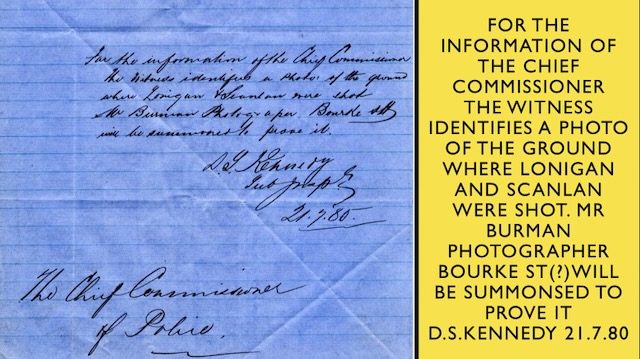 For the information of the Chief Commissioner
the Witness identifies a photo. of the ground
where Lonigan & Scanlan were shot
Mr Burman Photographer Bourke St
will be summoned to prove it.
D S Kennedy
Sub Inspr
21.7.80.
The Chief Commissioner
of Police.
FOR THE
INFORMATION OF
THE CHIEF
COMMISSIONER
THE WITNESS
IDENTIFIES A PHOTO
OF THE GROUND
WHERE LONIGAN
AND SCANLAN
WERE SHOT. MR
BURMAN
PHOTOGRAPHER
BOURKE ST(?)WILL
BE SUMMONSED TO
PROVE IT
D.S.KENNEDY 21.7.80